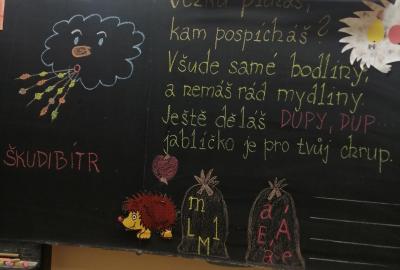 kam pospícháš?
Všude samé bodliny,
a nemáš rád mydliny.
Ještě děláš DUPY, DUP...
jablíčko je pro tvůj chrup.
ŠKUDIBÍTR
m
L 1
M
á Á
E a
á e